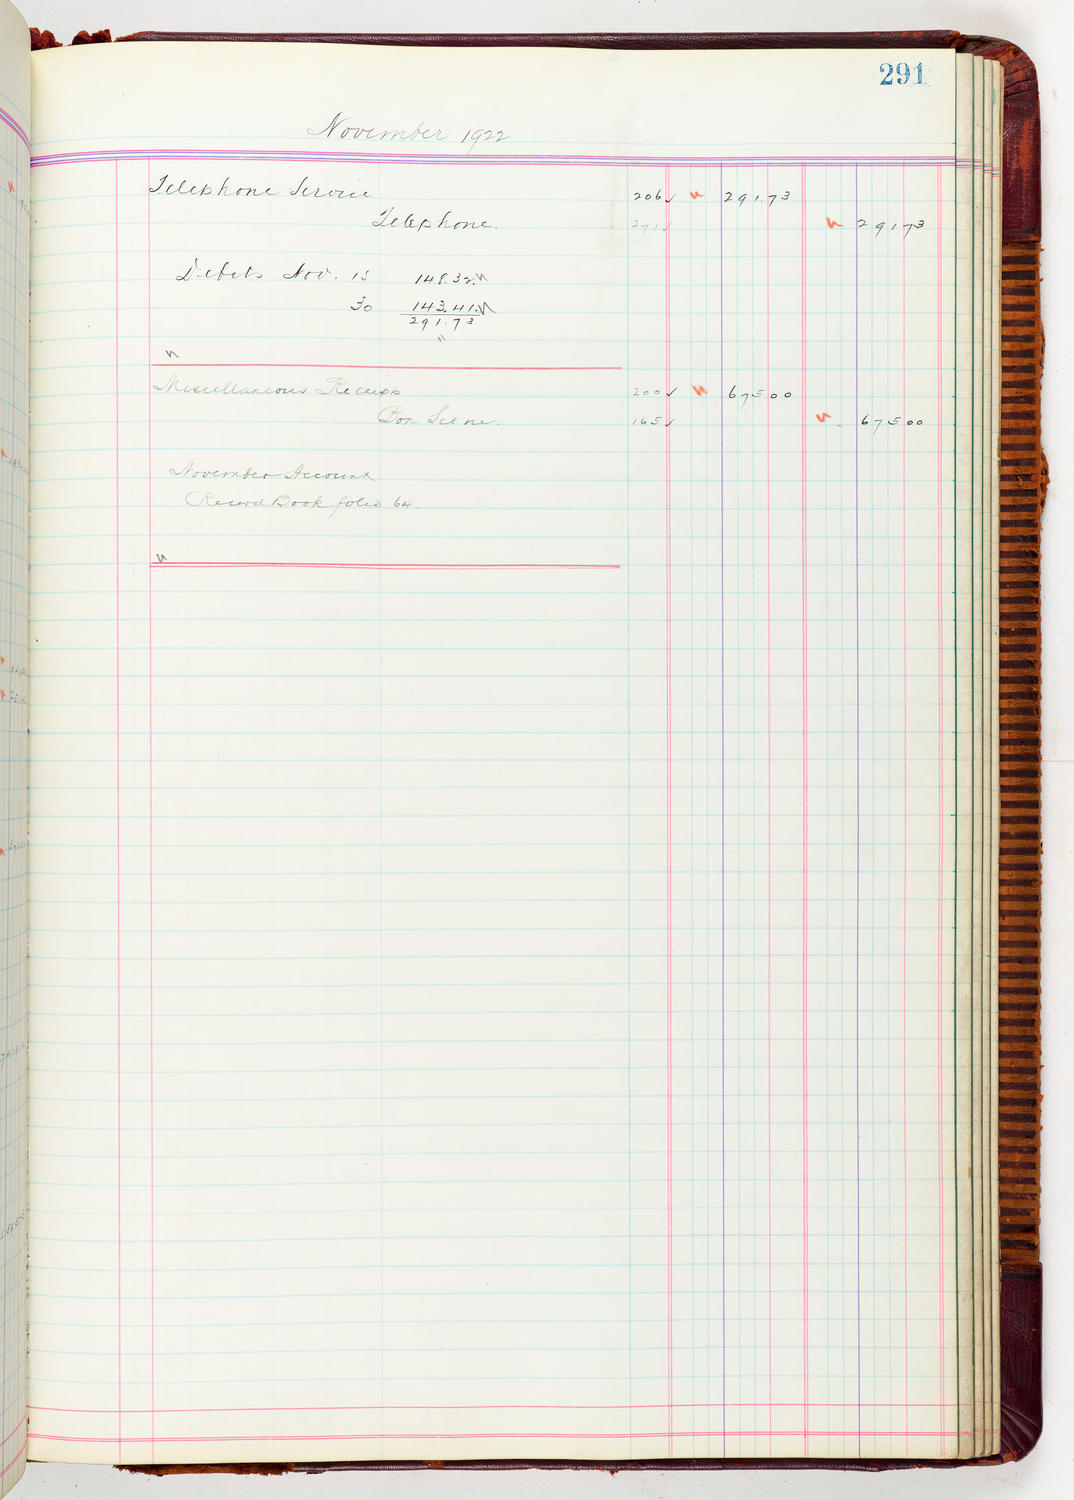 291
November 1922
Telephone Service 206 ✓ 291.73
Telephone. 271 ✓ 291.73
Debits Nov. 15 148.32
30 143.41
291.73
Miscellaneous Receipts 200 ✓ 675 00
Box Scene. 165 ✓ 675 00
November Account
Record Book folio 64.